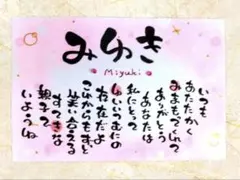 みゆき
Miyuki
いつも
あたたかく
みまもってくれて
ありがとう
あなたは
私にとって
しゅいつむにの
存在だよ
これからもずっと
笑い合える
すてきな
親子で
いようね